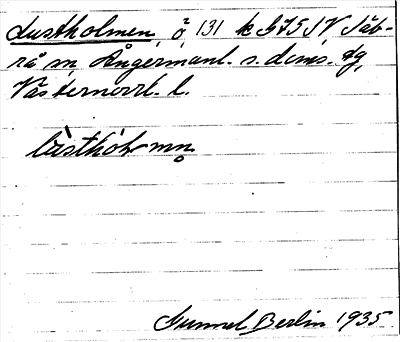 Lustholmen, ö, 131 k GFS IV Säb-
rå sn, Ångermanl. s. doms. dg,
Västernorrl. l.
lùsthòlmen
Gunnel Berlin 1935